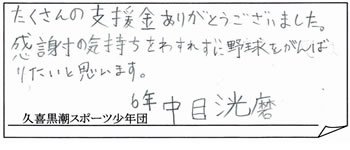 たくさんの支援金ありがとうございました。
感謝の気持ちをわすれずに野球をがんば
りたいと思います。
6年 中目洸磨
久喜黒潮スポーツ少年団